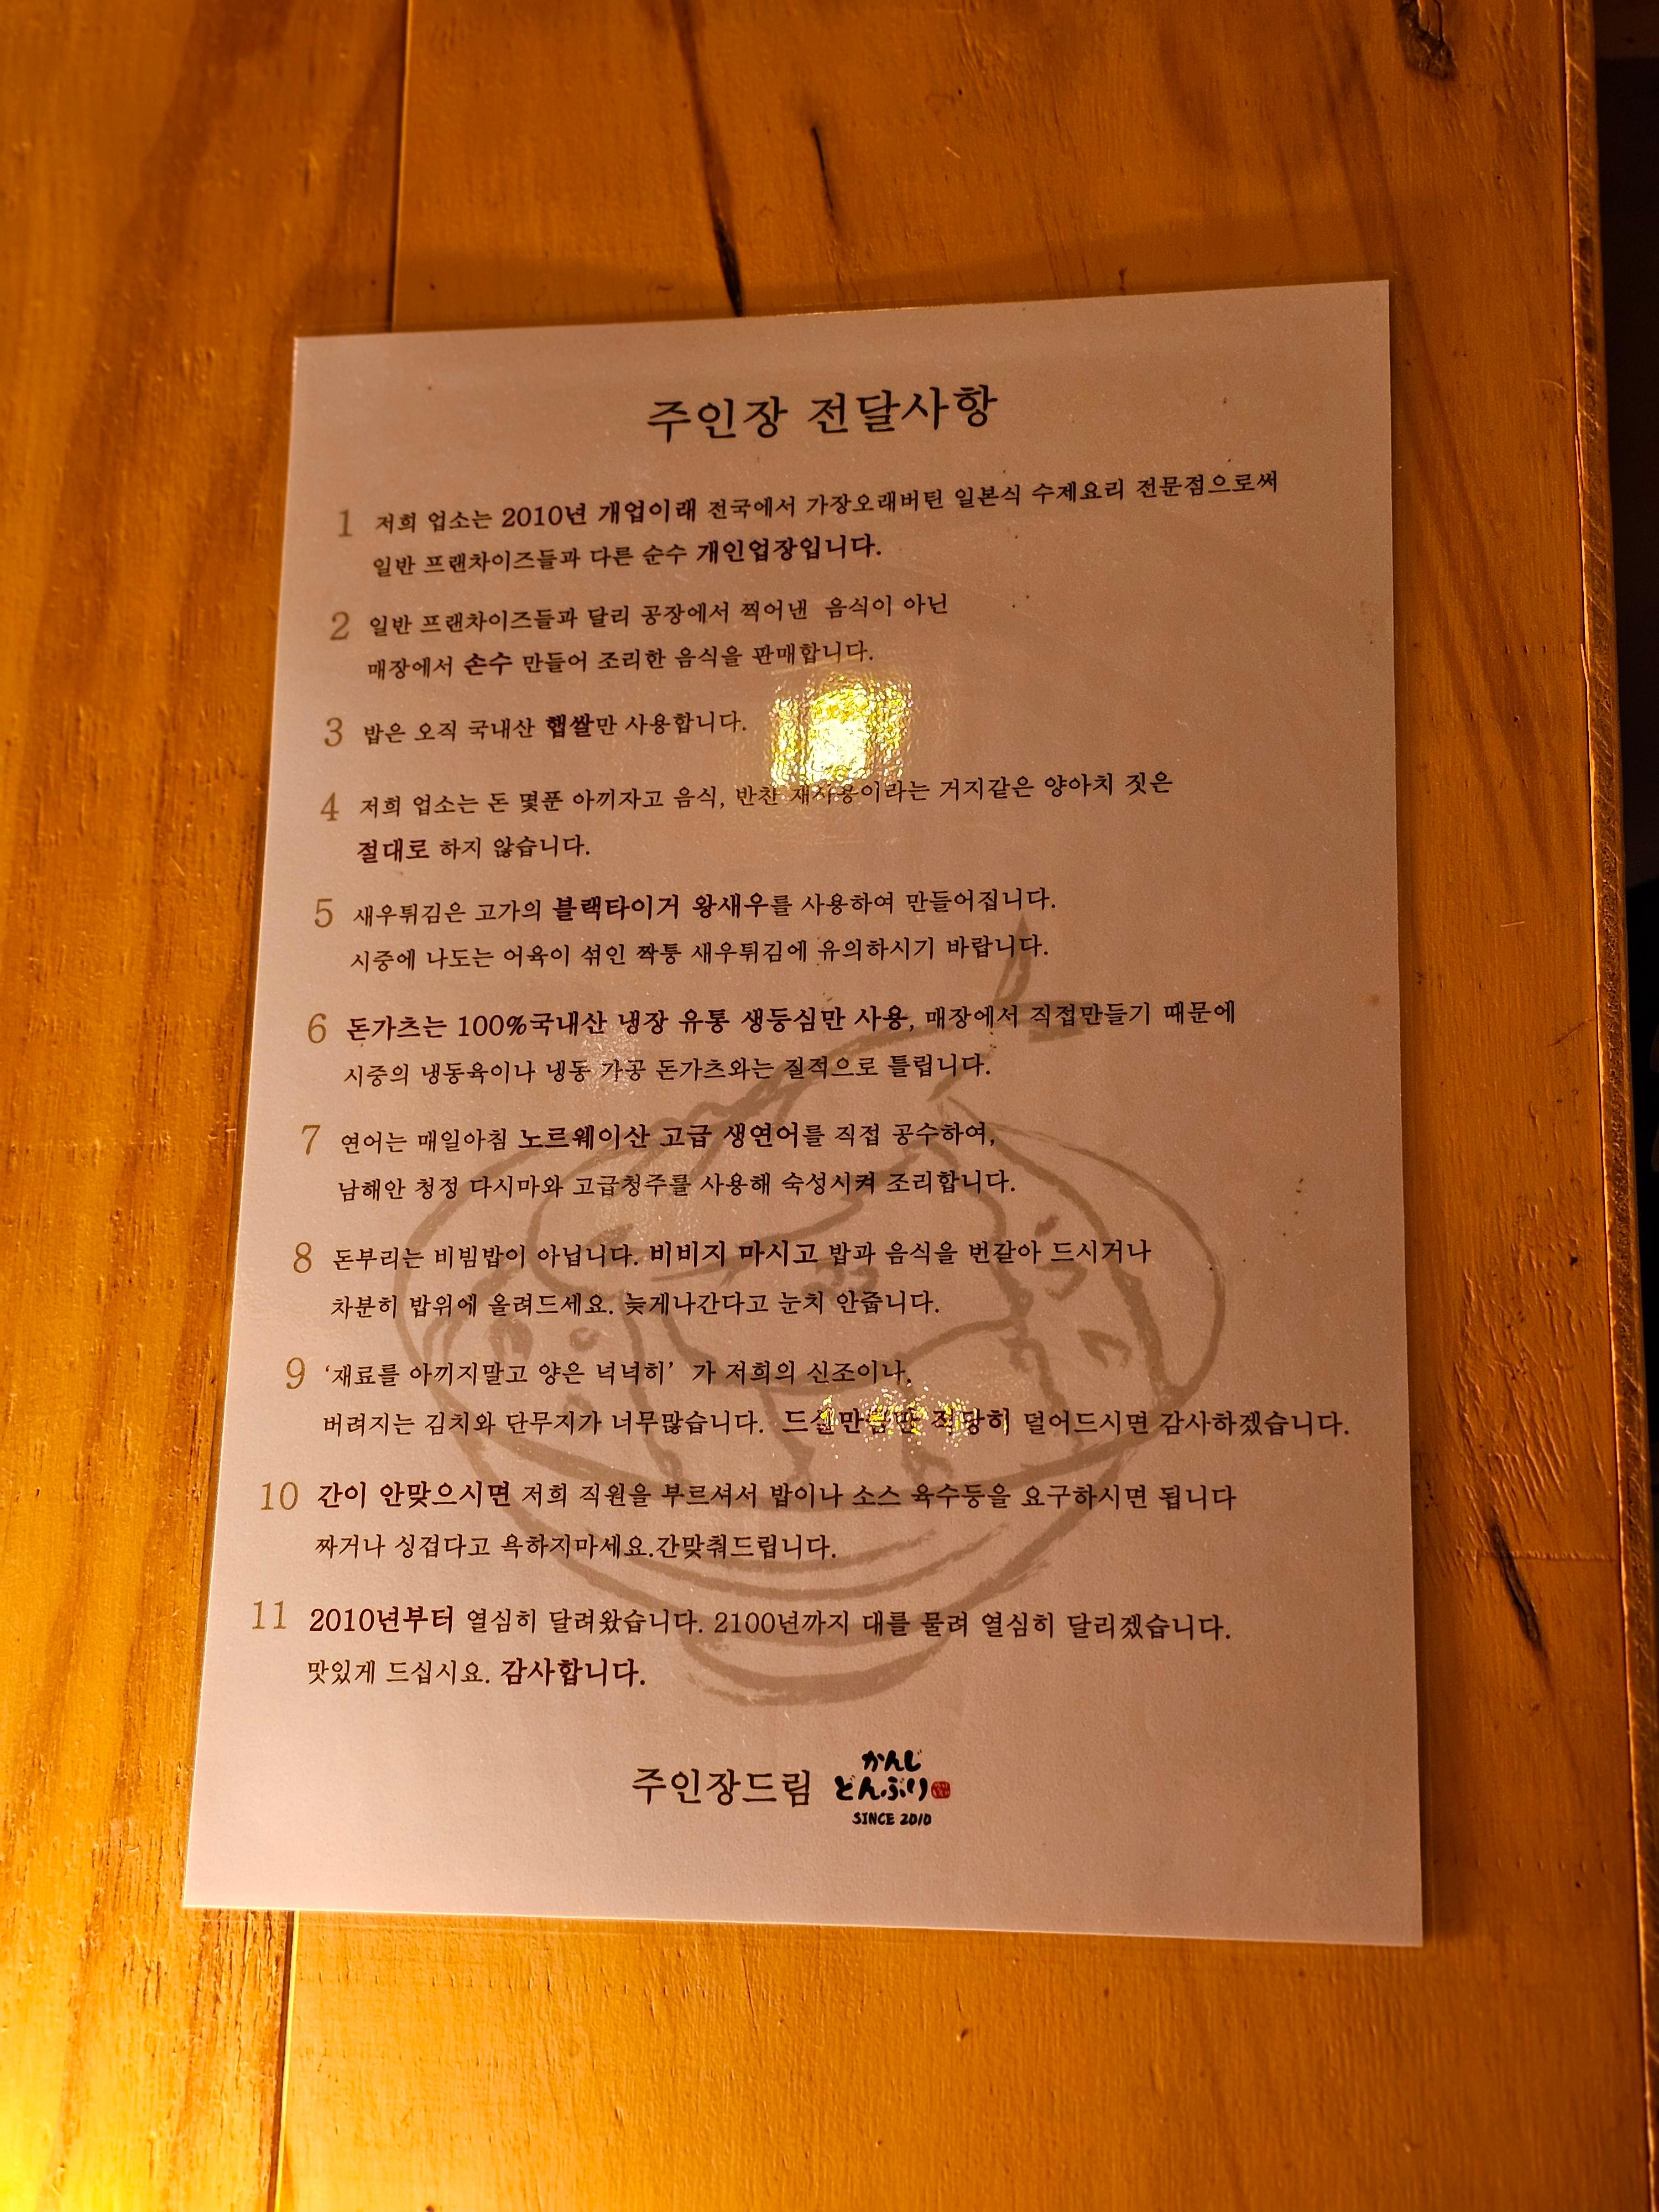 주인장 전달사항
1 저희 업소는 2010년 개업이래 전국에서 가장오래버틴 일본식 수제요리 전문점으로써
일반 프랜차이즈들과 다른 순수 개인업장입니다.
2 일반 프랜차이즈들과 달리 공장에서 찍어낸 음식이 아닌
매장에서 손수 만들어 조리한 음식을 판매합니다.
3 밥은 오직 국내산 햅쌀만 사용합니다.
4 저희 업소는 돈 몇푼 아끼자고 음식, 반찬 재사용이라는 거지같은 양아치 짓은
절대로 하지 않습니다.
5 새우튀김은 고가의 블랙타이거 왕새우를 사용하여 만들어집니다.
시중에 나도는 어육이 섞인 짝퉁 새우튀김에 유의하시기 바랍니다.
6 돈가츠는 100%국내산 냉장 유통 생등심만 사용, 매장에서 직접만들기 때문에
시중의 냉동육이나 냉동 가공 돈가츠와는 질적으로 틀립니다.
7 연어는 매일아침 노르웨이산 고급 생연어를 직접 공수하여,
남해안 청정 다시마와 고급청주를 사용해 숙성시켜 조리합니다.
8 돈부리는 비빔밥이 아닙니다. 비비지 마시고 밥과 음식을 번갈아 드시거나
차분히 밥위에 올려드세요. 늦게나간다고 눈치 안줍니다.
9 ‘재료를 아끼지말고 양은 넉넉히’ 가 저희의 신조이나,
버려지는 김치와 단무지가 너무많습니다. 드실만큼만 적당히 덜어드시면 감사하겠습니다.
10 간이 안맞으시면 저희 직원을 부르셔서 밥이나 소스 육수등을 요구하시면 됩니다
짜거나 싱겁다고 욕하지마세요.간맞춰드립니다.
11 2010년부터 열심히 달려왔습니다. 2100년까지 대를 물려 열심히 달리겠습니다.
맛있게 드십시요. 감사합니다.
주인장드림
かんじ
どんぶり
SINCE 2010